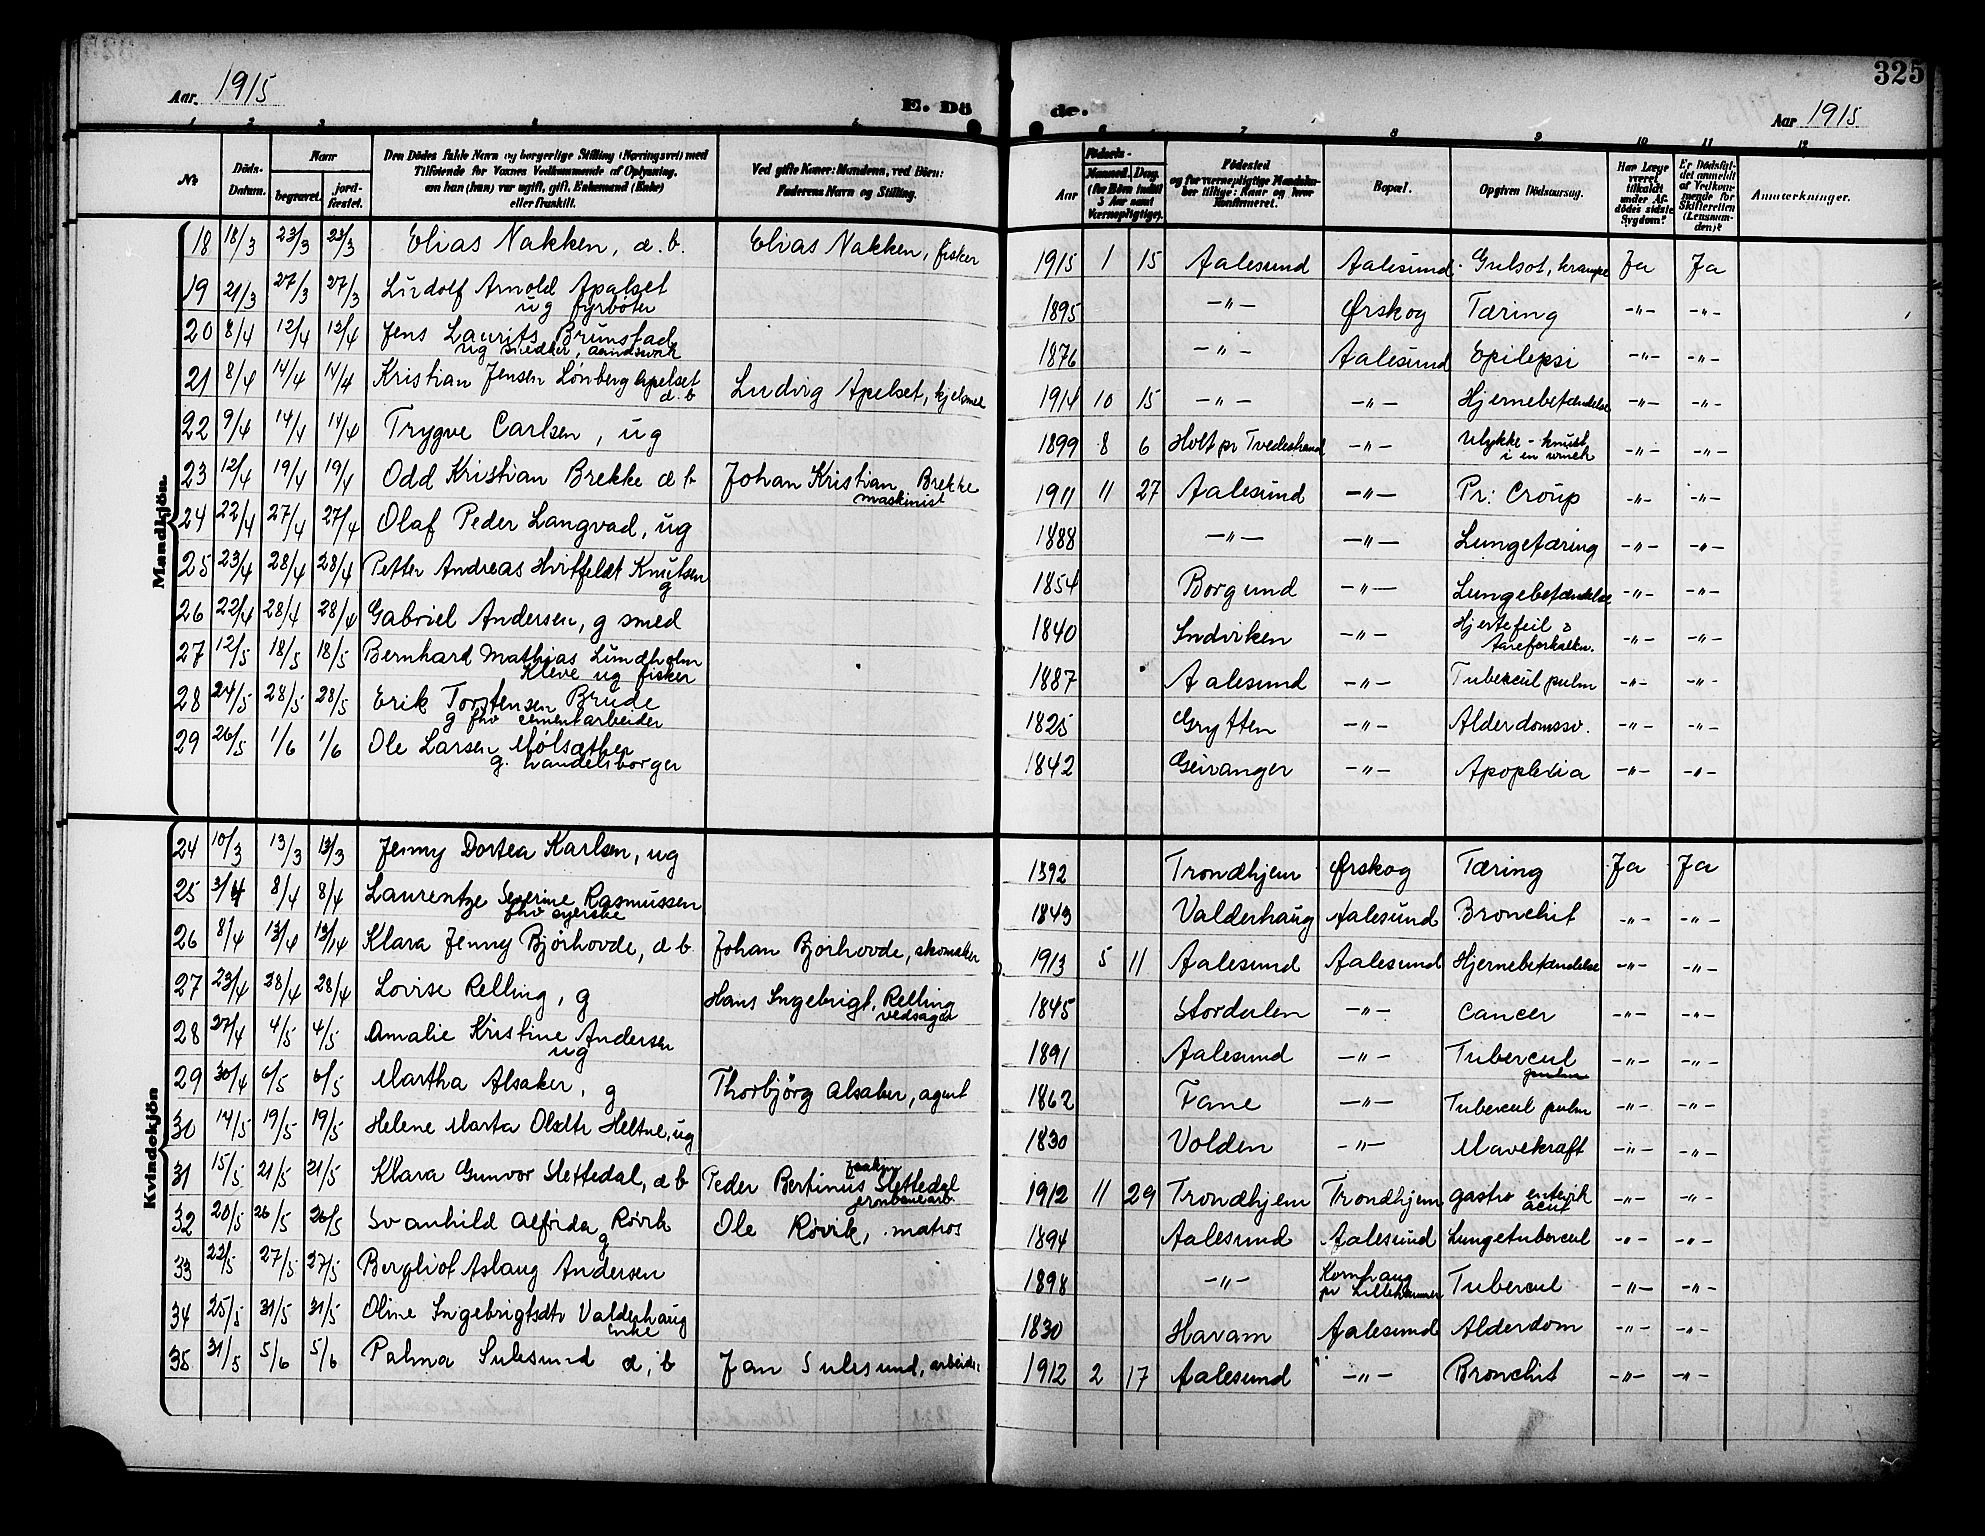 325
Aar. 1915 E. Dö de. Aar 1915
№ Döds-Datum. Naar begravet. jord-fæstet. Den Dödes fulde Navn og borgerlige Stilling (Næringsvei) med Tilföiende for Voxnes Vedkommende af Oplysning, om han (hun) var ugift, gift, Enkemand (Enke) eller fraskilt. Ved gifte Koner: Mandens, ved Börn: Faderens Navn og Stilling. Födsels- Aar Maaned. Dag. (for Börn indtil 5 Aar samt Værnepligtige). Födested og for værnepligtige Mandskaber tillige: Naar og hvor Konfirmeret. Bopæl. Opgiven Dödsaarsag. Har Læge været tilkaldt under Afdödes sidste Sygdom? Er Dödsfaldet anmeldt af Vedkommende for Skifteretten (Lensmanden)? Anmærkninger.
Mandkjön.
18 18/3 23/3 23/3 Elias Nakken, d. b. Elias Nakken, fisker 1915 1 15 Aalesund Aalesund Gulsot, krampe Ja Ja
19 21/3 27/3 27/3 Ludolf Arnold Apalset 1895 -"- Ørskog Tæring -"- -"-
ug fyrbøter
20 8/4 12/4 12/4 Jens Laurits Brunstad 1876 -"- Aalesund Epilepsi -"- -"-
ug snedker, aandssvak
21 8/4 14/4 14/4 Kristian Jensen Lønberg Apelset Ludvig Apelset, kjelsmed 1914 10 15 -"- -"- Hjernebetændelse -"- -"-
d. b
22 9/4 14/4 14/4 Trygve Carlsen, ug 1899 8 6 Holt pr Tvedestrand -"- Ulykke - knust -"- -"-
i en winch
23 12/4 19/4 19/4 Odd Kristian Brekke d b Johan Kristian Brekke 1911 11 27 Aalesund -"- Pr: Croup -"- -"-
maskinist
24 22/4 27/4 27/4 Olaf Peder Langvad, ug 1888 -"- -"- Lungetæring -"- -"-
25 23/4 28/4 28/4 Petter Andreas Hvitfeldt Knutsen 1854 Borgund -"- Lungebetændelse -"- -"-
g
26 22/4 28/4 28/4 Gabriel Andersen, g smed 1840 Indviken -"- Hjertefeil &
Aareforkalkn. -"- -"-
27 12/5 18/5 18/5 Bernhard Mathias Lundholm 1887 Aalesund -"- Tubercul pulm -"- -"-
Kleve ug fisker
28 24/5 28/5 28/5 Erik Torstensen Brude 1825 Grytten -"- Alderdomssv. -"- -"-
g fhv cementarbeider
29 26/5 1/6 1/6 Ole Larsen Mølsæther 1842 Geiranger -"- Apoplexia -"- -"-
g. handelsborger
Kvindekjön
24 10/3 13/3 13/3 Jenny Dortea Karlsen, ug 1892 Trondhjem Ørskog Tæring Ja Ja
25 3/4 8/4 8/4 Laurentze Severine Rasmussen 1843 Valderhaug Aalesund Bronchit -"- -"-
fhv syerske
26 8/4 13/4 13/4 Klara Jenny Bjørhovde, d b Johan Bjørhovde, skomaker 1913 5 11 Aalesund Aalesund Hjernebetændelse -"- -"-
27 23/4 28/4 28/4 Lovise Relling, g Hans Ingebrigt. Relling 1845 Stordalen -"- Cancer -"- -"-
vedsager
28 27/4 4/5 4/5 Amalie Kristine Andersen 1891 Aalesund -"- Tubercul -"- -"-
ug pulm
29 30/4 6/5 6/5 Martha Alsaker, g Thorbjörg Alsaker, agent 1862 Fane -"- Tubercul pulm -"- -"-
30 14/5 19/5 19/5 Helene Marta Olsdtr Heltne, ug 1830 Volden -"- Mavekræft -"- -"-
31 15/5 21/5 21/5 Klara Gunvor Slettedal, d b Peder Bertinus Joakim Slettedal 1912 11 29 Trondhjem Trondhjem gastro enterik -"- -"-
jernbanearb. acut
32 20/5 26/5 26/5 Svanhild Alfrida Røvik Ole Røvik, matros 1894 Aalesund Aalesund Lungetubercul -"- -"-
g
33 22/5 27/5 27/5 Bergliot Aslaug Andersen 1898 -"- Kornhaug
pr Lillehammer Tubercul -"- -"-
34 25/5 31/5 31/5 Oline Ingebrigtsdtr Valderhaug 1830 Haram Aalesund Alderdom -"- -"-
Enke
35 31/5 5/6 5/6 Palma Sulesund d, b Jan Sulesund, arbeider 1912 2 17 Aalesund -"- Bronchit -"- -"-